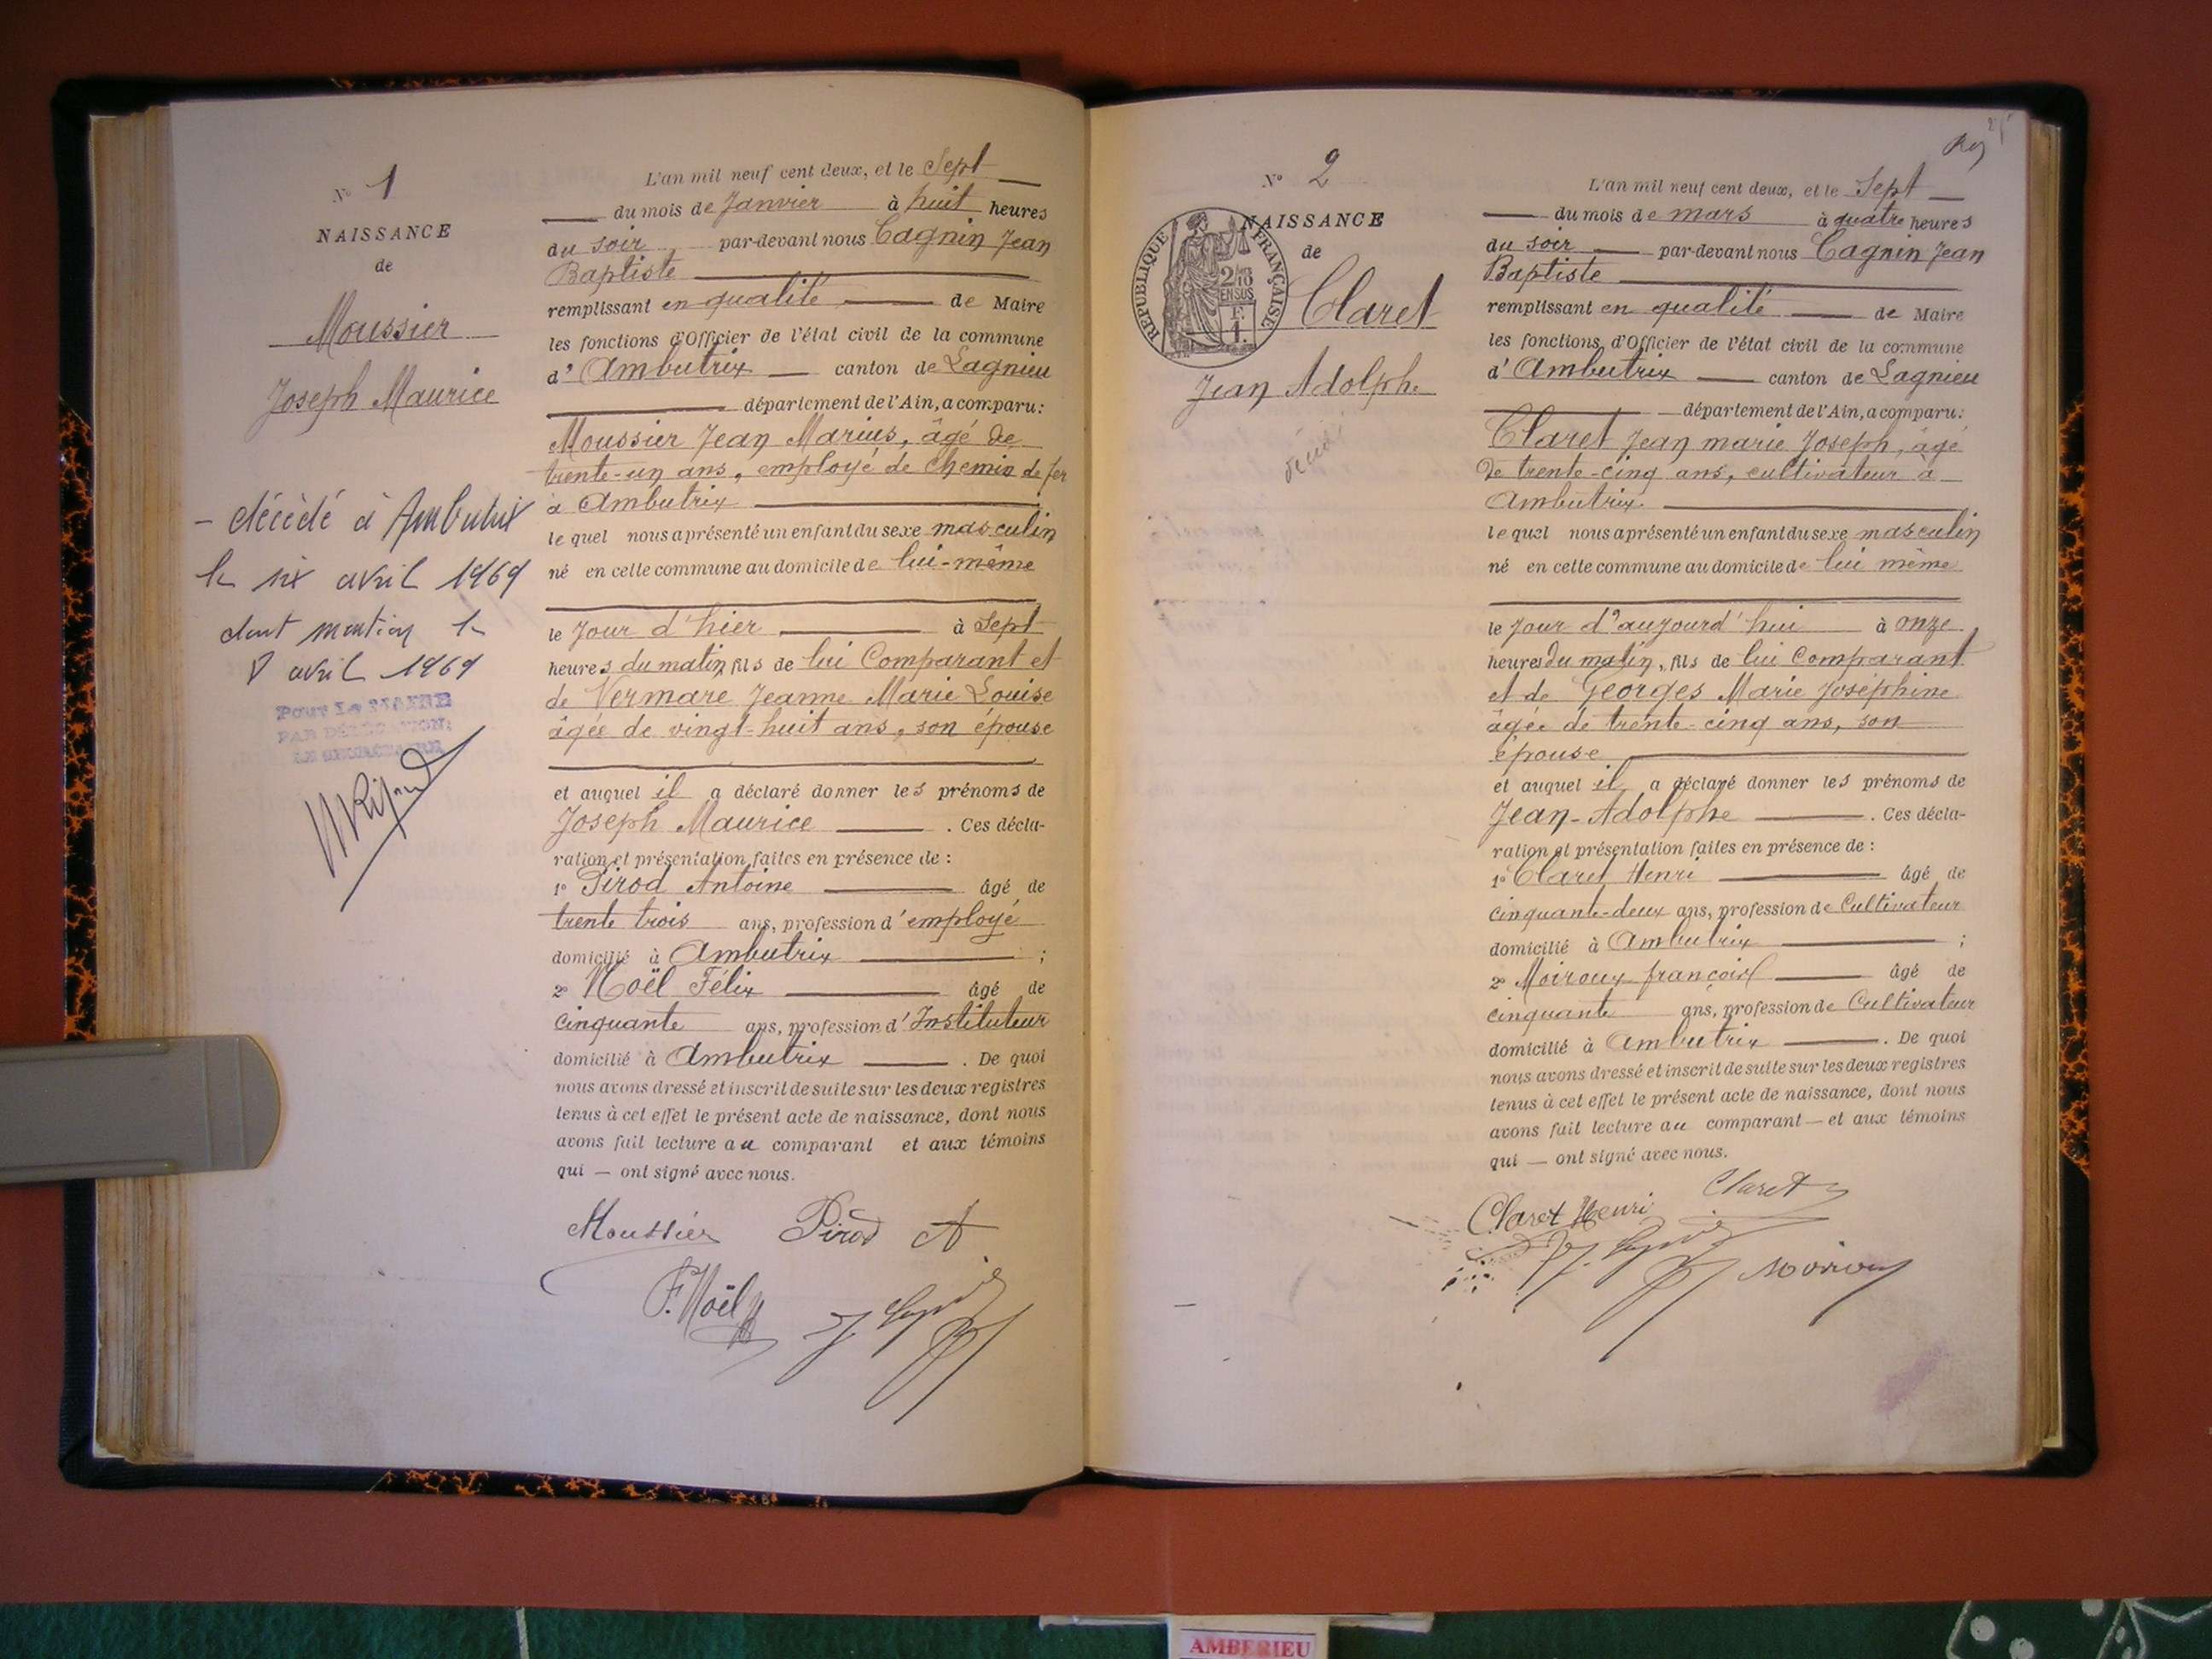 N° 1
NAISSANCE
de
Moussier
Joseph Maurice
- décédé à Ambutrix
le six avril 1969
dont mention le
8 avril 1969
POUR LE MAIRE
PAR DÉLÉGATION:
LE SECRÉTAIRE
L'an mil neuf cent deux, et le Sept
du mois de Janvier à huit heures
du soir par-devant nous Cagnin Jean
Baptiste
remplissant en qualité de Maire
les fonctions d'Officier de l'état civil de la commune
d' Ambutrix canton de Lagnieu
département de l'Ain, a comparu:
Moussier Jean Marius, âgé de
trente-un ans, employé de chemin de fer
à Ambutrix
lequel nous a présenté un enfant du sexe masculin
né en cette commune au domicile de lui-même
le Jour d'hier à Sept
heures du matin, fils de lui Comparant et
de Vermare Jeanne Marie Louise
âgée de vingt-huit ans, son épouse
et auquel il a déclaré donner les prénoms de
Joseph Maurice . Ces décla-
ration et présentation faites en présence de :
1° Pirod Antoine âgé de
trente trois ans, profession d'employé
domicilié à Ambutrix ;
2° Noël Félix âgé de
cinquante ans, profession d'Instituteur
domicilié à Ambutrix . De quoi
nous avons dressé et inscrit de suite sur les deux registres
tenus à cet effet le présent acte de naissance, dont nous
avons fait lecture au comparant et aux témoins
qui — ont signé avec nous.
Moussier Pirod A
F. Noël
N° 2
NAISSANCE
de
RÉPUBLIQUE FRANÇAISE
2/10
EN SUS
F.
1.
Claret
Jean Adolphe
L'an mil neuf cent deux, et le Sept
du mois de mars à quatre heures
du soir par-devant nous Cagnin Jean
Baptiste
remplissant en qualité de Maire
les fonctions d'Officier de l'état civil de la commune
d' Ambutrix canton de Lagnieu
département de l'Ain, a comparu:
Claret Jean marie Joseph, âgé
de trente-cinq ans, cultivateur à
Ambutrix
lequel nous a présenté un enfant du sexe masculin
né en cette commune au domicile de lui même
le Jour d'aujourd'hui à onze
heures du matin, fils de lui Comparant
et de Georges Marie Joséphine
âgée de trente-cinq ans, son
épouse
et auquel il a déclaré donner les prénoms de
Jean-Adolphe . Ces décla-
ration et présentation faites en présence de :
1° Claret Henri âgé de
cinquante-deux ans, profession de Cultivateur
domicilié à Ambutrix ;
2° Moiroux françois âgé de
cinquante ans, profession de Cultivateur
domicilié à Ambutrix . De quoi
nous avons dressé et inscrit de suite sur les deux registres
tenus à cet effet le présent acte de naissance, dont nous
avons fait lecture au comparant — et aux témoins
qui — ont signé avec nous.
Claret
Claret Henri
Moiroux
AMBERIEU